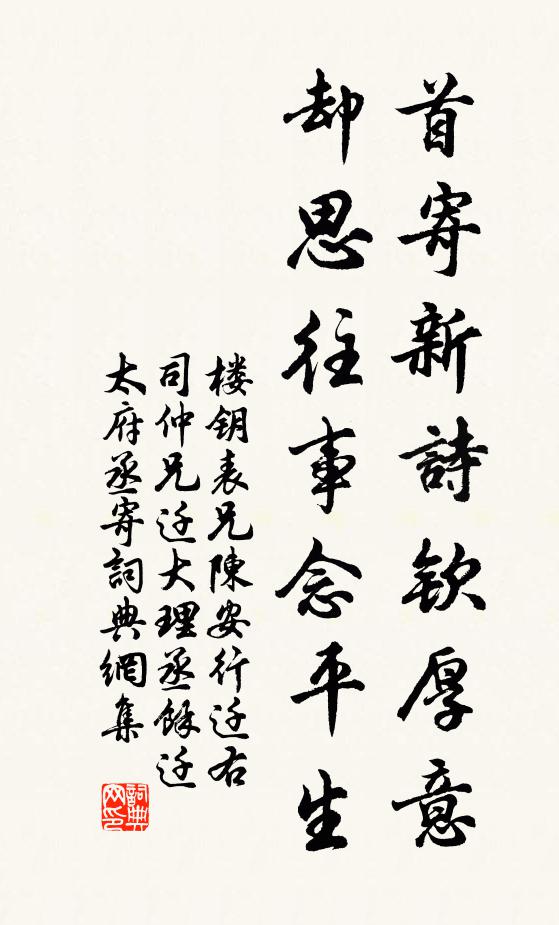 首寄新詩欽厚意
却思往事念平生
楼钥表兄陳安行迁右
司仲兄迁大理丞餘迁
太府丞寄詞典網集
詞典网印